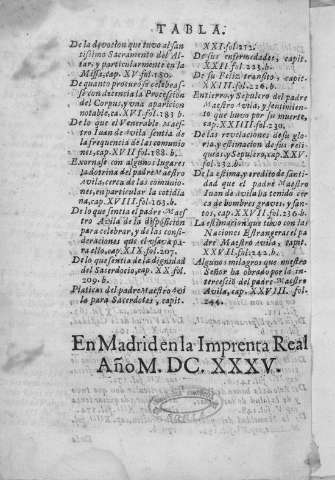 TABLA.
De la devocion que tuvo al san
tissimo Sacramento del Al-
tar, y particularmente en la
Missa, cap. XV. fol. 180.
De quanto procurò se celebras-
se con decencia la Procession
del Corpus, y una aparicion
notable, ca. XVI. fol. 183. b.
De lo que el Venerable Maes-
tro Iuan de Avila sentia de
la frequencia de las comunio
nes, cap. XVII. fol. 188. b.
Exornase con algunos lugares
la dotrina del padre Maestro
Avila, cerca de las comunio-
nes, en particular la cotidia
na, cap. XVIII. fol. 203. b.
De lo que sentia el padre Maes
tro Avila de la disposicion
para celebrar, y de las consi-
deraciones que el usava pa-
ra ello, cap. XIX. fol. 207.
De lo que sentia de la dignidad
del Sacerdocio, cap. XX. fol.
209. b.
Platicas del padre Maestro Avi
la para Sacerdotes, capit.
XXI. fol. 212.
De sus enfermedades, capit.
XXII. fol. 223. b.
De su feliz transito, capit.
XXIII. fol. 226. b.
Entierro, y Sepulcro del padre
Maestro Avila, y sentimien-
to que huvo por su muerte,
cap. XXIIII. fol. 230.
De las revelaciones de su glo-
ria, y estimacion de sus reli-
quias, y Sepulcro, cap. XXV.
fol. 232. b.
De la estima, y credito de santi
dad que el padre Maestro
Iuan de Avila ha tenido cer
ca de hombres graves, y san-
tos, cap. XXVI. fol. 236. b.
La estimacion que tuvo con las
Naciones Estrangeras el pa
dre Maestro Avila, capit.
XXVII. fol. 242. b.
Algunos milagros que nuestro
Señor ha obrado por la in-
tercession del padre Maestro
Avila, cap. XXVIII. fol.
244.
En Madrid en la Imprenta Real
Año M. DC. XXXV.